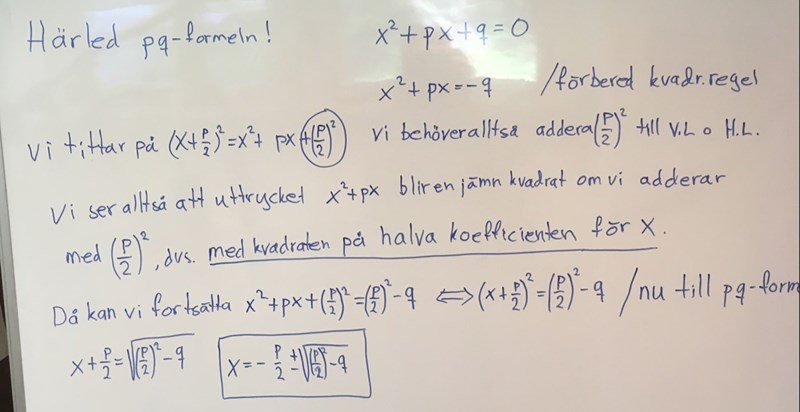 Härled pq-formeln! x²+px+q=0
x²+px=-q /förbered kvadr.regel
Vi tittar på (x+p/2)²=x²+ px+(p/2)² vi behöver alltså addera (p/2)² till V.L o H.L.
Vi ser alltså att uttrycket x²+px blir en jämn kvadrat om vi adderar
med (p/2)², dvs. med kvadraten på halva koefficienten för x.
Då kan vi fortsätta x²+px+(p/2)²=(p/2)²-q ⟺ (x+p/2)²=(p/2)²-q /nu till pq-form
x+p/2=√((p/2)²-q) x=-p/2±√((p/2)²-q)